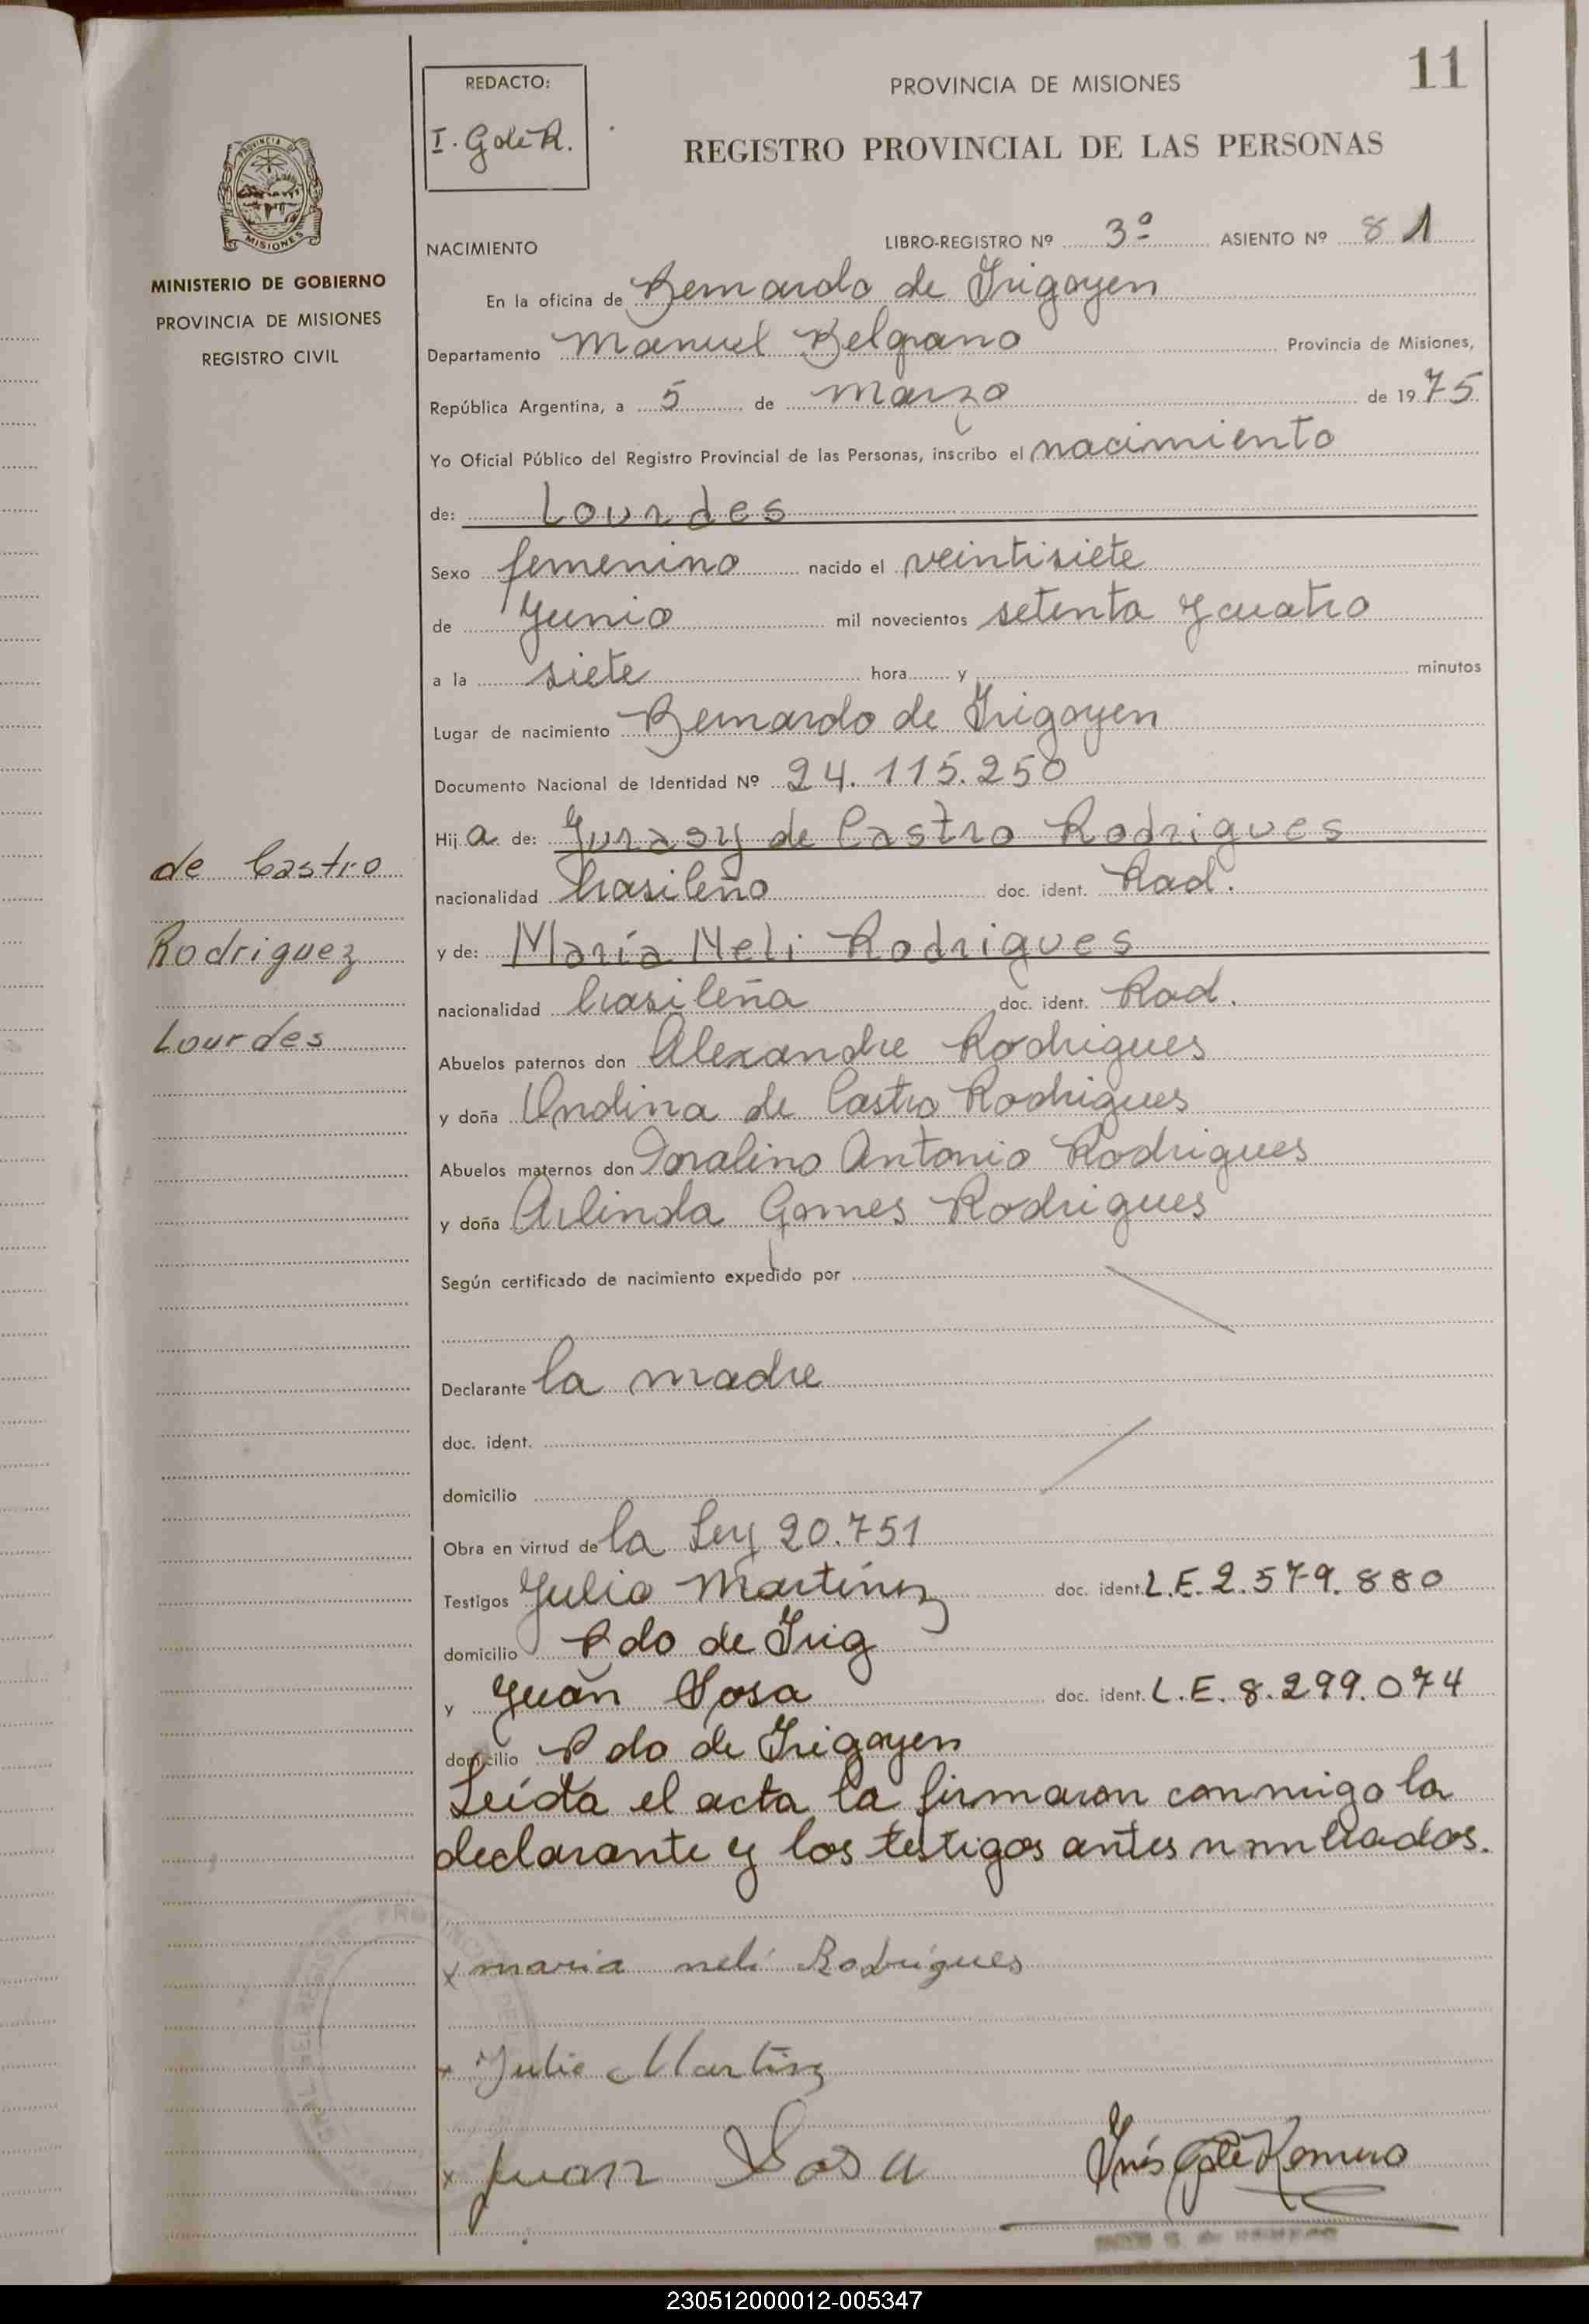 11
REDACTO:
I. G de R.
PROVINCIA DE MISIONES
REGISTRO PROVINCIAL DE LAS PERSONAS
PROVINCIA
MISIONES
MINISTERIO DE GOBIERNO
PROVINCIA DE MISIONES
REGISTRO CIVIL
NACIMIENTO
LIBRO-REGISTRO Nº 3º ASIENTO Nº 81
En la oficina de Bernardo de Irigoyen
Departamento Manuel Belgrano Provincia de Misiones,
República Argentina, a 5 de Marzo de 1975
Yo Oficial Público del Registro Provincial de las Personas, inscribo el nacimiento
de: Lourdes
Sexo femenino nacido el veintisiete
de Junio mil novecientos setenta y cuatro
a la siete hora y minutos
Lugar de nacimiento Bernardo de Irigoyen
Documento Nacional de Identidad Nº 24.115.250
Hija de: Jurasy de Castro Rodrigues
de Castro
nacionalidad brasileño doc. ident. Rad.
Rodriguez
y de: María Neli Rodrigues
nacionalidad brasileña doc. ident. Rad.
Lourdes
Abuelos paternos don Alexandre Rodrigues
y doña Ondina de Castro Rodrigues
Abuelos maternos don Doralino Antonio Rodrigues
y doña Arlinda Gomes Rodrigues
Según certificado de nacimiento expedido por
Declarante la madre
doc. ident.
domicilio
Obra en virtud de la Ley 20.751
Testigos Julio Martínez doc. ident. L.E. 2.579.880
domicilio Bdo de Irig
y Juan Sosa doc. ident. L.E. 8.299.074
domicilio Bdo de Irigoyen
Leída el acta la firmaron conmigo la
declarante y los testigos antes nombrados.
x maria neli Rodrigues
x Julio Martinz
x Juan Sosa
Inés G de Romero
230512000012-005347